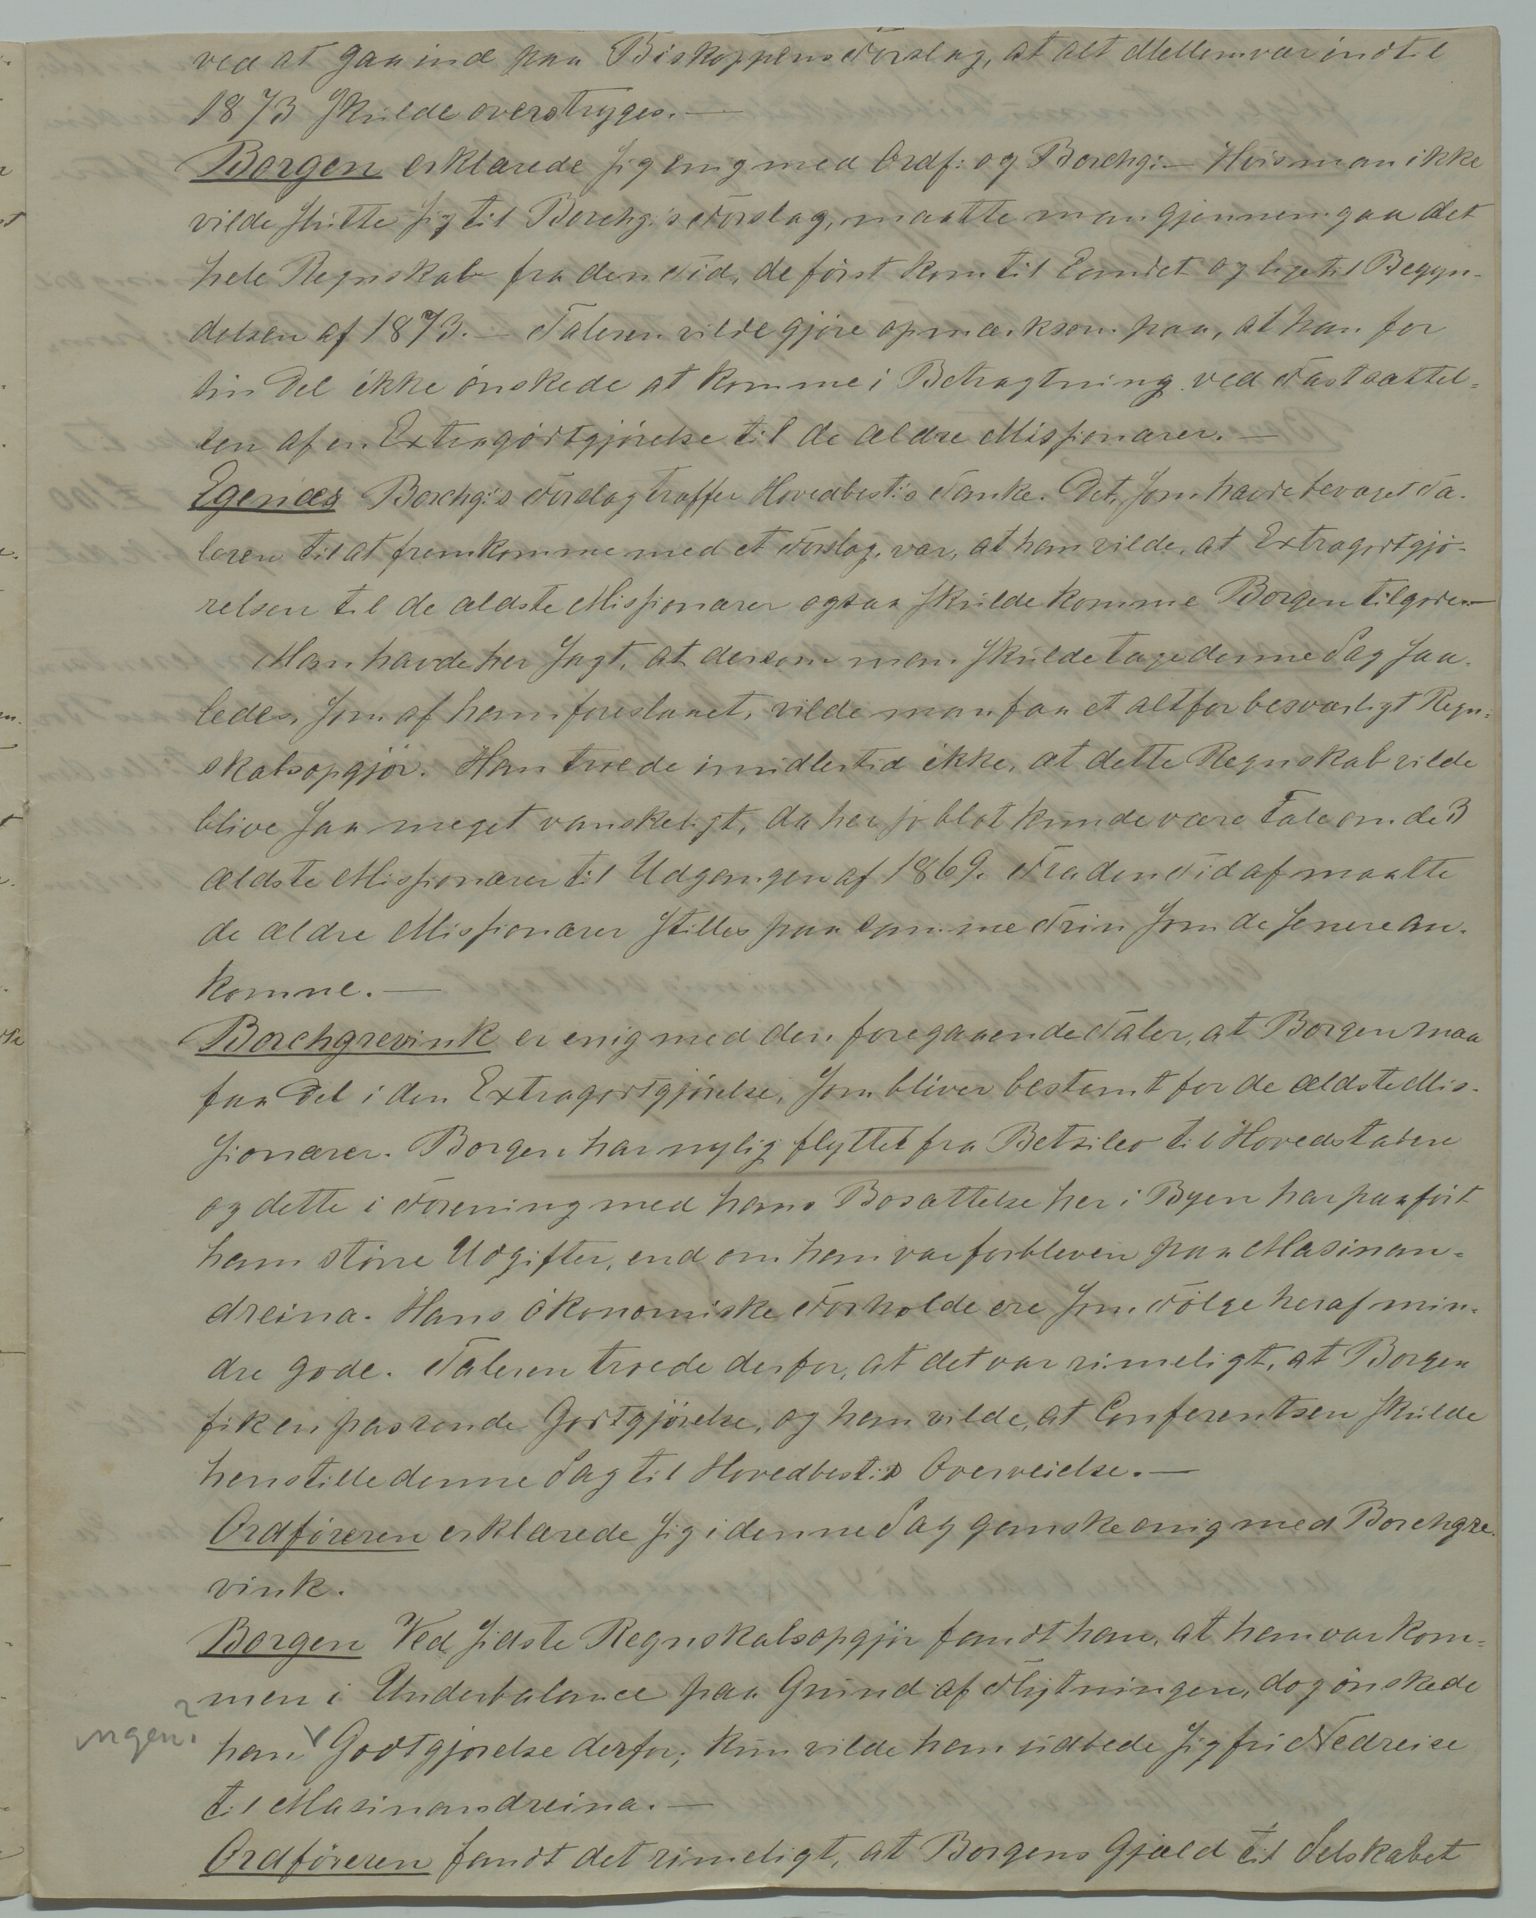 ved at gaa ind paa Biskoppens Forslag, at alt Mellemvær indtil
1873 skulde overstryges. —
Borgen erklærede sig enig med Ordf: og Borchg: — Hvis man ikke
vilde slutte sig til Borchg:s Forslag, maatte man gjennemgaa det
hele Regnskab fra den Tid, de først kom til Landet og lige til Begyn-
delsen af 1873. — Taleren vilde gjøre opmærksom paa, at han for
sin Del ikke ønskede at komme i Betragtning ved Fastsættel-
sen af en Extragodtgjørelse til de ældre Missionærer. —
Egenæs Borchg:s Forslag træffer Hovedbest:s Tanke. Det, som havde bevæget Ta-
leren til at fremkomme med et Forslag, var, at han vilde, at Extragodtgjø-
relsen til de ældste Missionærer ogsaa skulde komme Borgen tilgode. —
Man havde her sagt, at dersom man skulde tage denne Sag saa-
ledes, som af ham foreslaaet, vilde man faa et altfor besværligt Regn-
skabsopgjør. Han troede imidlertid ikke, at dette Regnskab vilde
blive saa meget vanskeligt, da her jo blot kunde være Tale om de 3
ældste Missionærer til Udgangen af 1869. Fra den Tid af maatte
de ældre Missionærer stilles paa samme Trin som de senere an-
komne. —
Borchgrevink er enig med den foregaaende Taler, at Borgen maa
faa Del i den Extragodtgjørelse, som bliver bestemt for de ældste Mis-
sionærer. Borgen har nylig flyttet fra Betsileo til Hovedstaden
og dette i Forening med hans Bosættelse her i Byen har paaført
ham større Udgifter, end om han var forbleven paa Masinan-
dreina. Hans økonomiske Forholde ere som Følge heraf min-
dre gode. Taleren troede derfor, at det var rimeligt, at Borgen
fik en passende Godtgjørelse, og han vilde, at Conferentsen skulde
henstille denne Sag til Hovedbest:s Overveielse. —
Ordføreren erklærede sig i denne Sag ganske enig med Borchgre-
vink.
Borgen Ved sidste Regnskabsopgjør fandt han, at han var kom-
men i Underbalance paa Grund af Flytningen, dog ønskede
ingen? han ˅ Godtgjørelse derfor; kun vilde han udbede sig fri Nedreise
til Masinandreina. —
Ordføreren fandt det rimeligt, at Borgens Gjæld til Selskabet